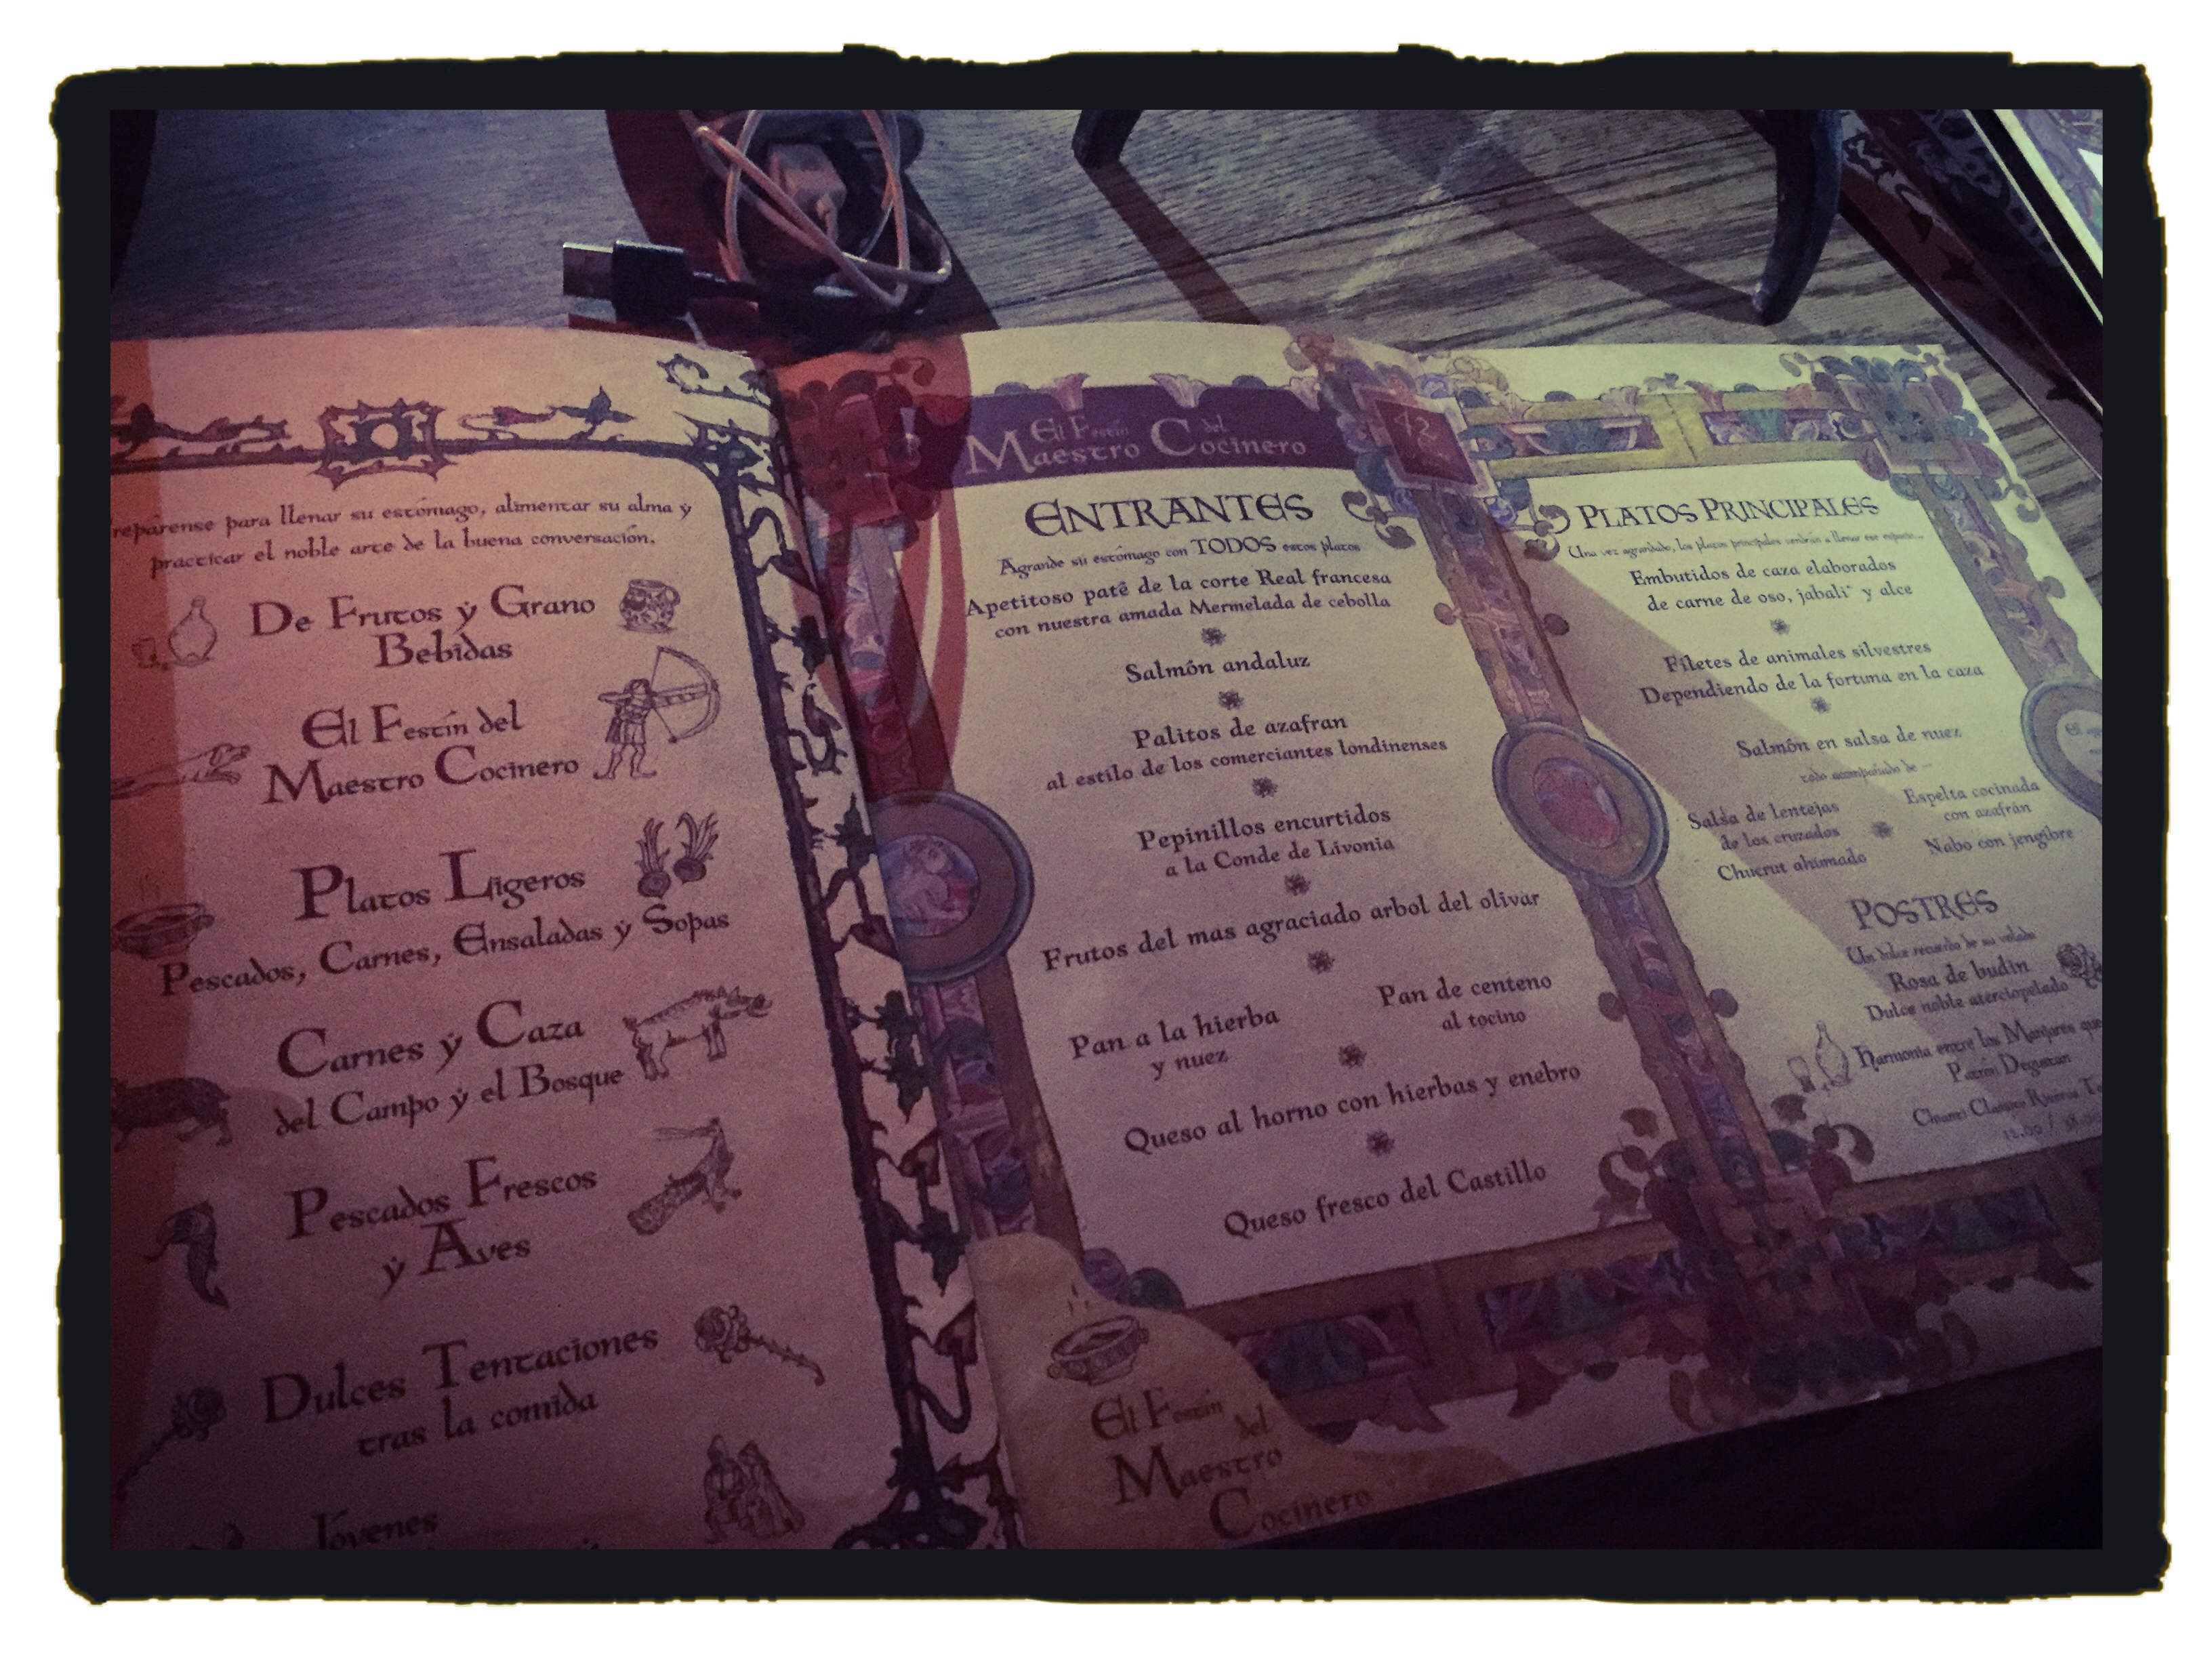 reparense para llenar su estómago, alimentar su alma ẏ
practicar el noble arte de la buena conversación.
De Frutos ẏ Grano
Bebidas
El Festín del
Maestro Cocinero
Platos Ligeros
Pescados, Carnes, Ensaladas ẏ Sopas
Carnes ẏ Caza
del Campo ẏ el Bosque
Pescados Frescos
ẏ Aves
Dulces Tentaciones
tras la comida
Jóvenes
El Festín del
Maestro Cocinero
42
ENTRANTES
Agrande su estómago con TODOS estos platos
Apetitoso patê de la corte Real francesa
con nuestra amada Mermelada de cebolla
Salmón andaluz
Palitos de azafran
al estilo de los comerciantes londinenses
Pepinillos encurtidos
a la Conde de Livonia
Frutos del mas agraciado arbol del olivar
Pan a la hierba
y nuez
Pan de centeno
al tocino
Queso al horno con hierbas y enebro
Queso fresco del Castillo
El Festín
del
Maestro
Cocinero
PLATOS PRINCIPALES
Una vez agrandado, los platos principales vendrán a llenar ese espacio...
Embutidos de caza elaborados
de carne de oso, jabali´ y alce
Filetes de animales silvestres
Dependiendo de la fortuna en la caza
Salmón en salsa de nuez
todo acompañado de
Salsa de lentejas
de los cruzados
Chucrut ahumado
Espelta cocinada
con azafrán
Nabo con jengibre
POSTRES
Un dulce recuerdo de su velada
Rosa de budin
Dulce noble aterciopelado
Harmonia entre los Manjares que
Patrón Degustan
Chianti Classico Riserva
12.00 /